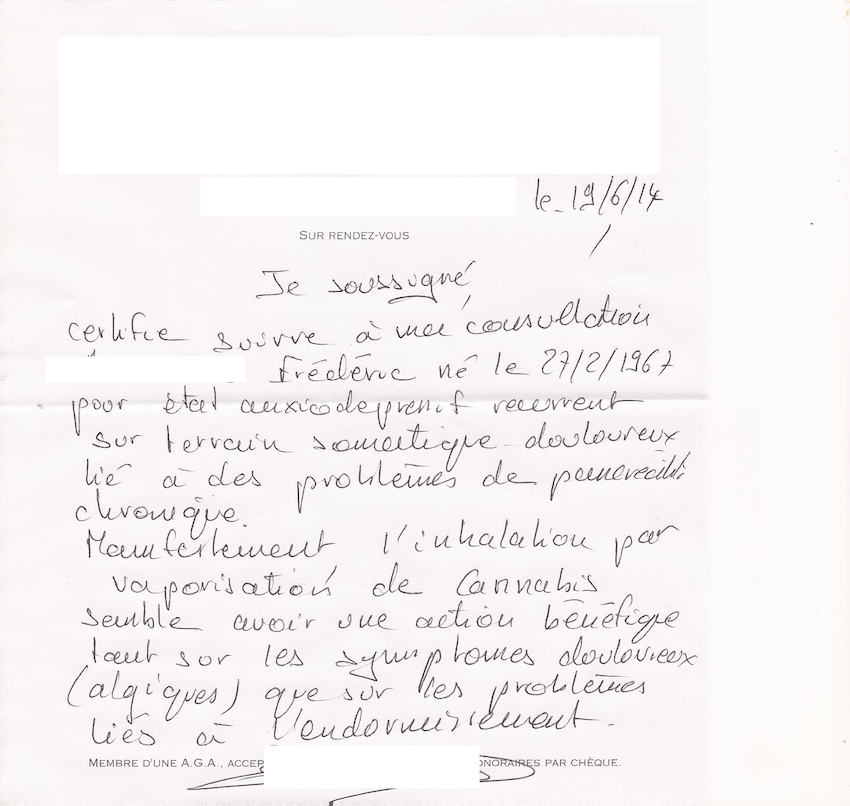 le 19/6/14
SUR RENDEZ-VOUS
Je soussigné
certifie suivre à ma consultation
Frédéric né le 27/2/1967
pour état anxiodepressif récurrent
sur terrain somatique douloureux
lié à des problèmes de pancréatite
chronique.
Manifestement l'inhalation par
vaporisation de Cannabis
semble avoir une action bénéfique
tant sur les symptomes douloureux
(algiques) que sur les problèmes
liés à l'endormissement.
MEMBRE D'UNE A.G.A., ACCEP ONORAIRES PAR CHÈQUE.